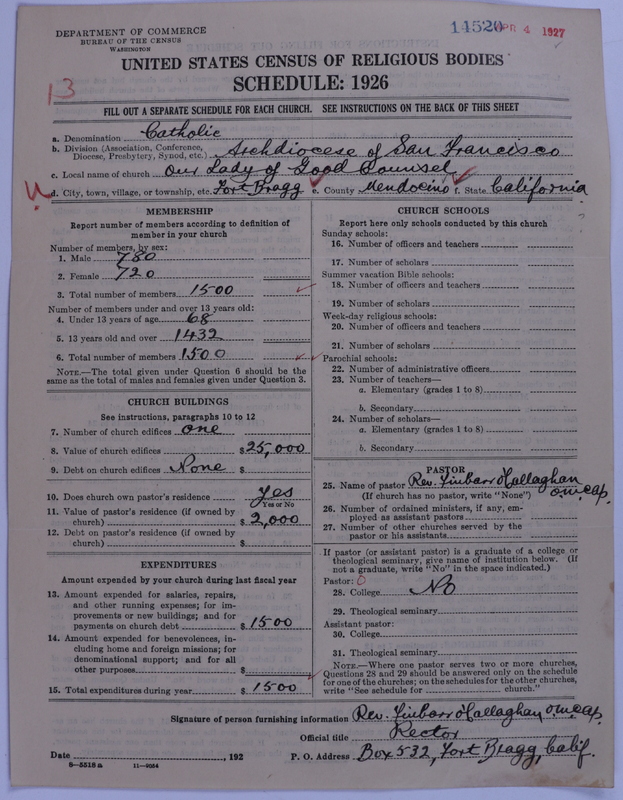 DEPARTMENT OF COMMERCE
BUREAU OF THE CENSUS
WASHINGTON
14520 APR 4 1927
UNITED STATES CENSUS OF RELIGIOUS BODIES
SCHEDULE: 1926
13
FILL OUT A SEPARATE SCHEDULE FOR EACH CHURCH. SEE INSTRUCTIONS ON THE BACK OF THIS SHEET
a. Denomination Catholic
b. Division (Association, Conference, Diocese, Presbytery, Synod, etc.) Archdiocese of San Francisco
c. Local name of church Our Lady of Good Counsel
d. City, town, village, or township, etc. Fort Bragg e. County Mendocino f. State California
MEMBERSHIP
Report number of members according to definition of
member in your church
Number of members, by sex:
1. Male 780
2. Female 720
3. Total number of members 1500
Number of members under and over 13 years old:
4. Under 13 years of age 68
5. 13 years old and over 1432
6. Total number of members 1500
NOTE.—The total given under Question 6 should be
same as the total of males and females given under Question 3.
CHURCH BUILDINGS
See instructions, paragraphs 10 to 12
7. Number of church edifices one
8. Value of church edifices $25,000
9. Debt on church edifices None $
10. Does church own pastor's residence yes
Yes or No
11. Value of pastor's residence (if owned by
church) $2,000
12. Debt on pastor's residence (if owned by
church) $
EXPENDITURES
Amount expended by your church during last fiscal year
13. Amount expended for salaries, repairs,
and other running expenses; for im-
provements or new buildings; and for
payments on church debt $1500
14. Amount expended for benevolences, in-
cluding home and foreign missions; for
denominational support; and for all
other purposes $
15. Total expenditures during year $1500
CHURCH SCHOOLS
Report here only schools conducted by this church
Sunday schools:
16. Number of officers and teachers
17. Number of scholars
Summer vacation Bible schools:
18. Number of officers and teachers
19. Number of scholars
Week-day religious schools:
20. Number of officers and teachers
21. Number of scholars
Parochial schools:
22. Number of administrative officers
23. Number of teachers—
a. Elementary (grades 1 to 8)
b. Secondary
24. Number of scholars—
a. Elementary (grades 1 to 8)
b. Secondary
PASTOR
25. Name of pastor Rev. Finbarr O'Callaghan
(If church has no pastor, write "None") O.M.Cap.
26. Number of ordained ministers, if any, em-
ployed as assistant pastors
27. Number of other churches served by the
pastor or his assistants
If pastor (or assistant pastor) is a graduate of a college or
theological seminary, give name of institution below. (If
not a graduate, write "No" in the space indicated.)
Pastor: 0
28. College No
29. Theological seminary
Assistant pastor:
30. College
31. Theological seminary
NOTE.—Where one pastor serves two or more churches,
Questions 28 and 29 should be answered only on the schedule
for one of the churches; on the schedules for the other churches,
write "See schedule for church."
Signature of person furnishing information Rev. Finbarr O'Callaghan O.M.Cap.
Official title Rector
Date , 192 P. O. Address Box 532, Fort Bragg, Calif.
8—5516 a 11—9054